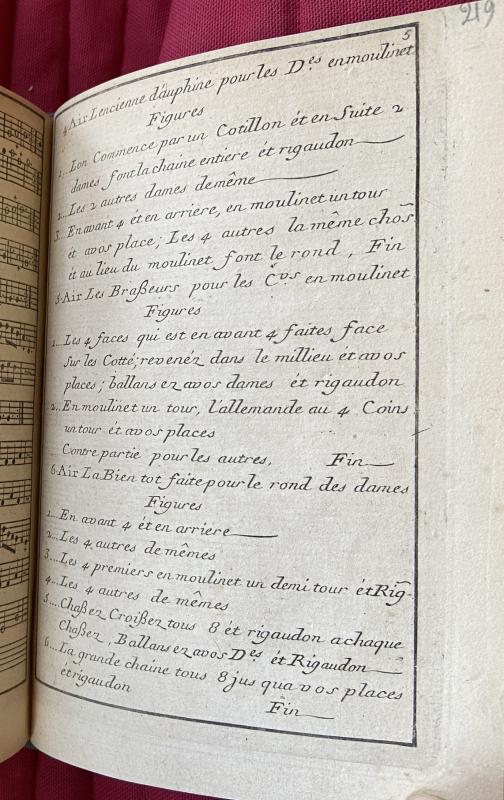 219
5
4.Air Lencienne dauphine pour les D.es en moulinet
Figures
1... Lon Commence par un Cotillon ét en Suite 2
dames font la chaine entiere ét rigaudon
2... Les 2 autres dames de même
3... En avant 4 ét en arriere, en moulinet un tour
ét avos place; Les 4 autres la même chos
ét au lieu du moulinet font le rond, Fin
5.Air Les Braßeurs pour les C.vs en moulinet
Figures
1... Les 4 faces qui est en avant 4 faites face
Sur les Cotté; revenéz dans le millieu ét avos
places; ballans ez avos dames ét rigaudon
2... En moulinet un tour, l'allemande au 4 Coins
un tour ét avos places
Contre partie pour les autres, Fin
6.Air La Bien tot faite pour le rond des dames
Figures
1... En avant 4 ét en arriere
2... Les 4 autres de mêmes
3... Les 4 premiers en moulinet un demi tour ét Rig-
4... Les 4 autres de mêmes
5... Chaßez Croißez tous 8 ét rigaudon a chaque
Chaßez, Ballans ez avos D.es ét Rigaudon
6... La grande chaine tous 8 jus qua vos places
ét rigaudon
Fin